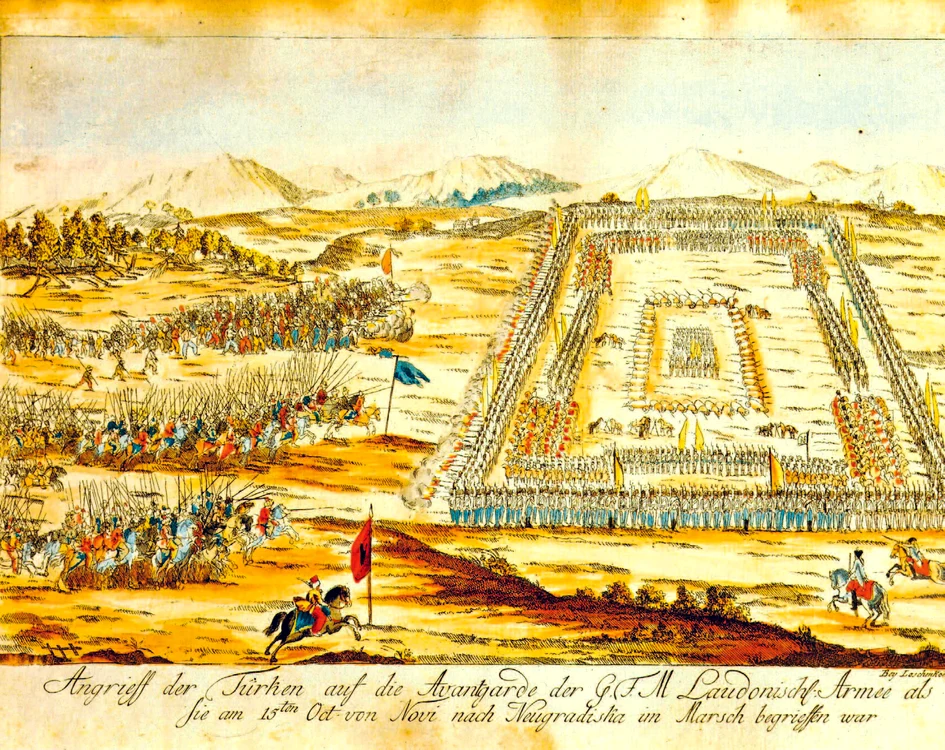 Bey Loschenko
Angrieff der Türken auf die Avantgarde der G. F. M Laudonisch: Armee als
sie am 15ten Oct: von Novi nach Neugradiska im Marsch begrieffen war